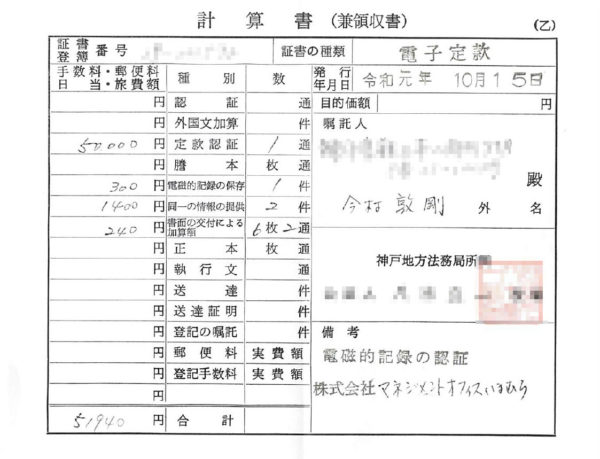 計算書(兼領収書)
(乙)
証書 登簿 番号
証書の種類 電子定款
手数料・郵便料 日当・旅費額 種別 数 発行年月日 令和元年 10月15日
円 認証 通 目的価額 円
円 外国文加算 件 嘱託人
50,000 円 定款認証 1 通
円 謄本 枚 通 殿
300 円 電磁的記録の保存 1 件
1400 円 同一の情報の提供 2 件 今村敦剛 外 名
240 円 書面の交付による加算額 6枚2通
円 正本 枚 通
円 執行文 通 神戸地方法務局所
円 送達 件
円 送達証明 件
円 登記の嘱託 件 備考
円 郵便料 実費額 電磁的記録の認証
円 登記手数料 実費額 株式会社マネジメントオフィスいまむら
円
51940 円 合計